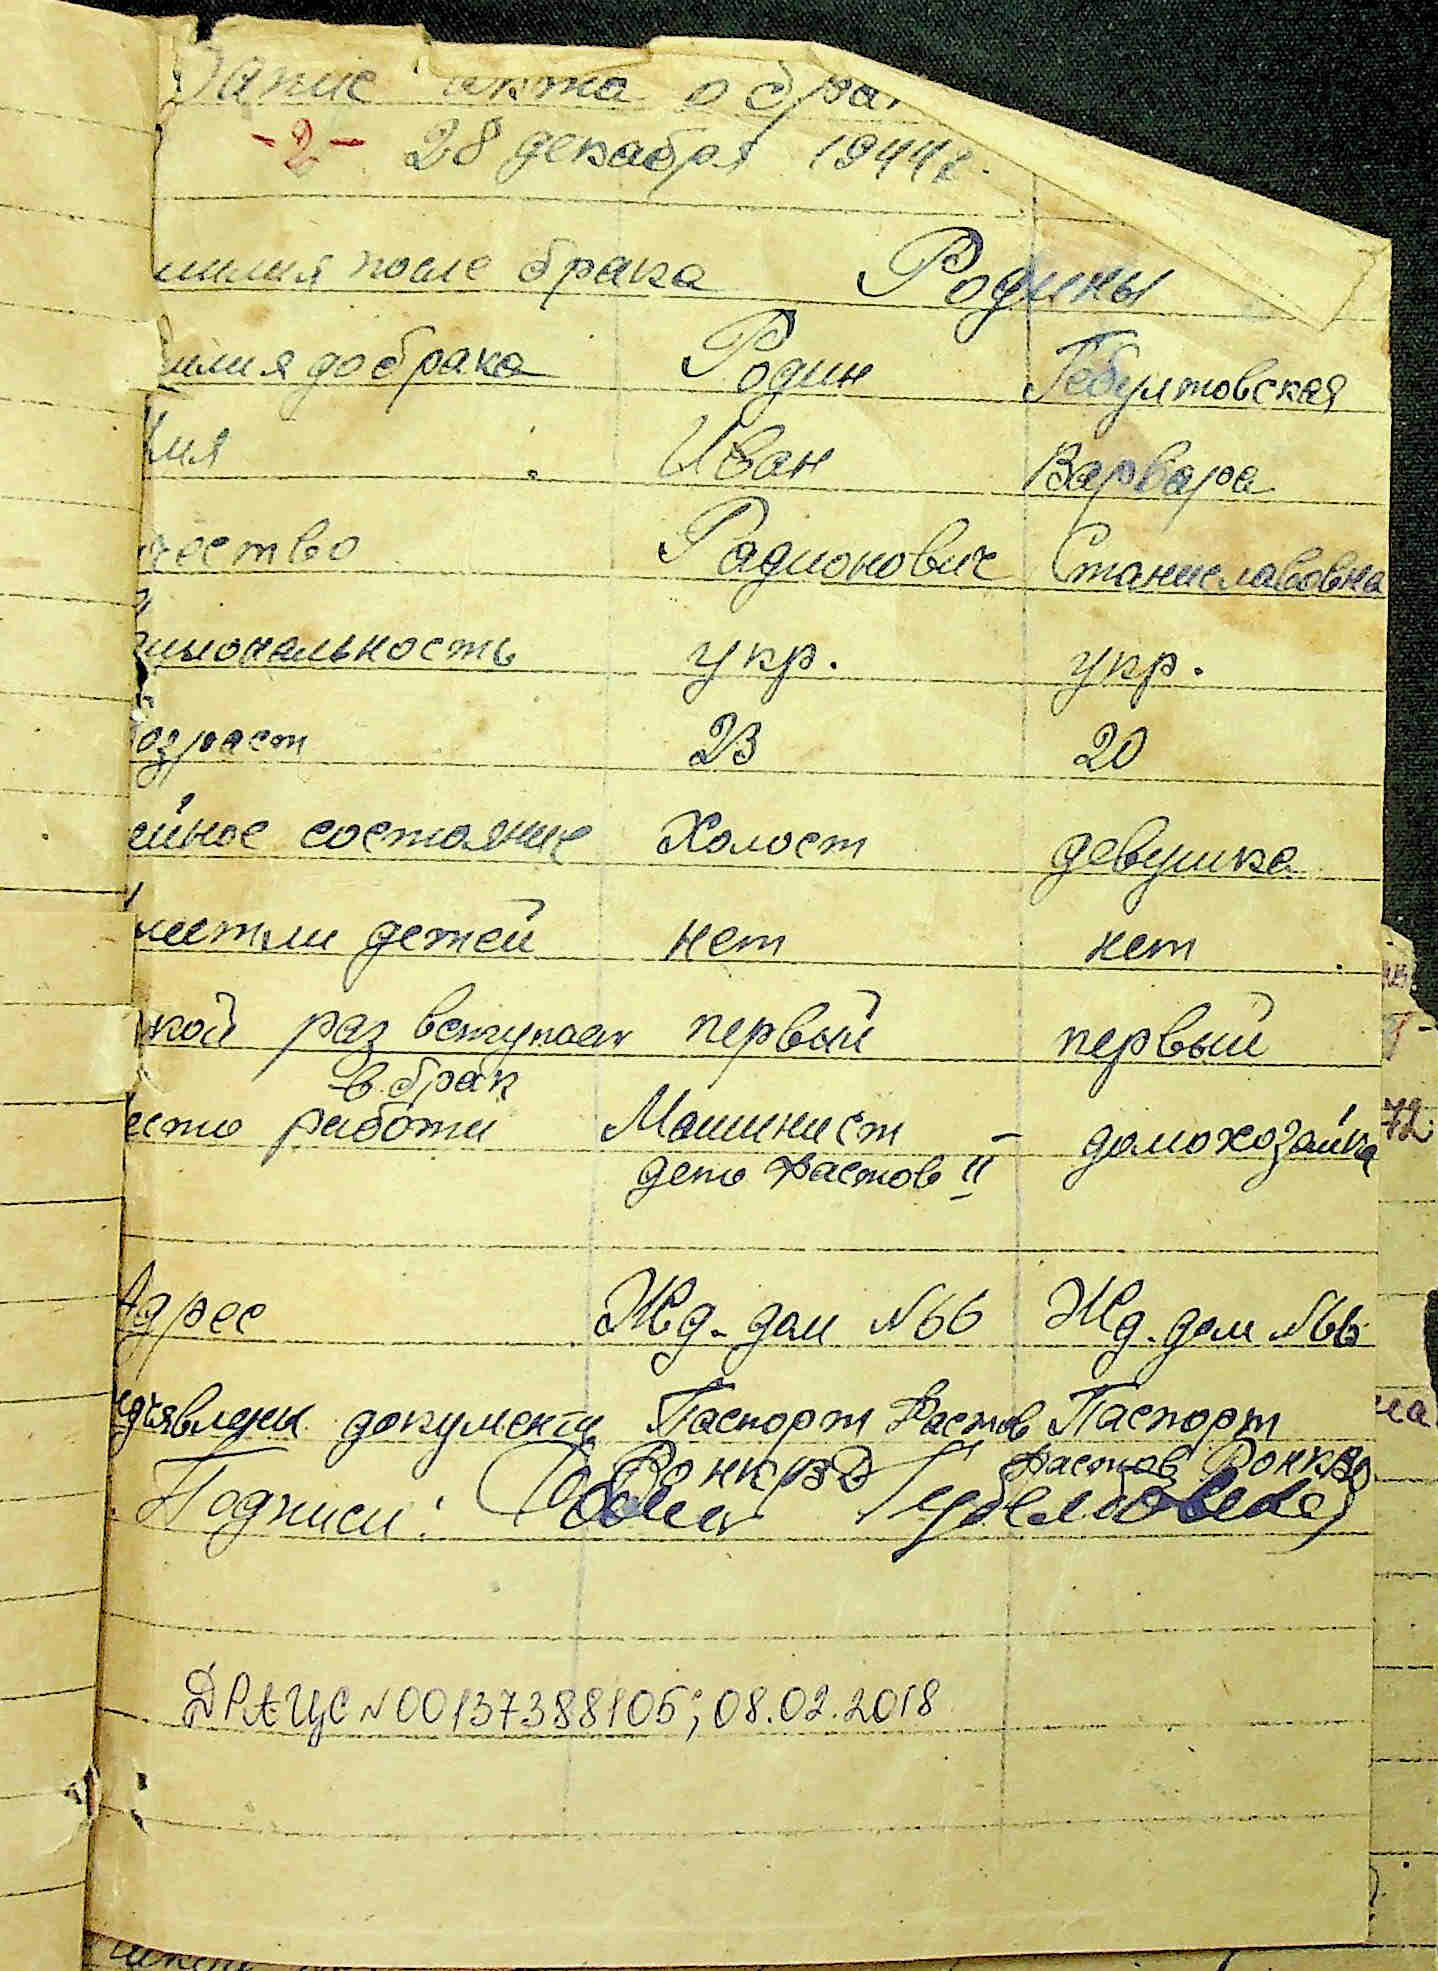 Запис акта о брак
-2- 28 декабря 1944г.
милия после брака Родины
милия до брака Родин Гебултовская
Имя Иван Варвара
чество Радионович Станиславовна
циональность укр. укр.
озраст 23 20
ейное состояние Холост девушка
меет ли детей нет нет
кой раз вступает первый первый
в брак
есто работи Машинист – домохозайка
депо Фастов II
Адрес Жд. дом №66 Жд. дом №66
едъявлены документы Паспорт Фастов Паспорт
РОНКВД Фастов РОНКВД
Подписи: Родин
ДРАЦС №00137388105; 08.02.2018